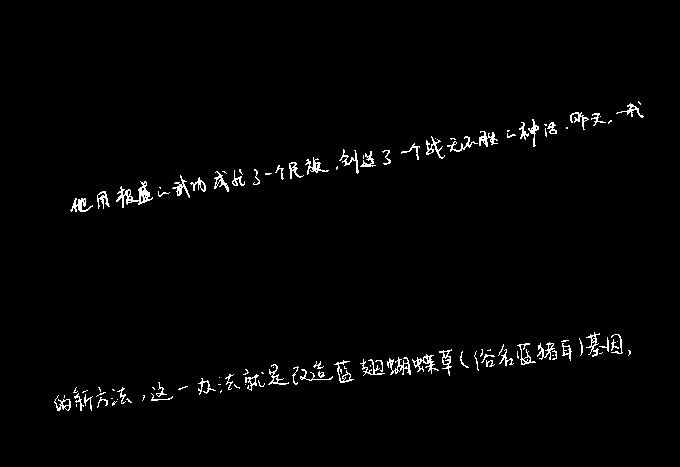 他用极盛的武功成就了一个民族，创造了一个战无不胜的神话。昨天，一我
的新方法，这一办法就是改造蓝翅蝴蝶草（俗名蓝猪耳）基因，